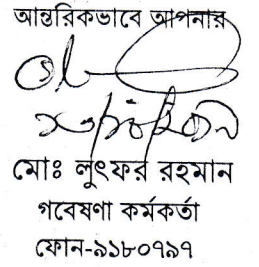 আন্তরিকভাবে আপনার
মোঃ লুৎফর রহমান
গবেষণা কর্মকর্তা
ফোন-৯১৮০৭৯৭